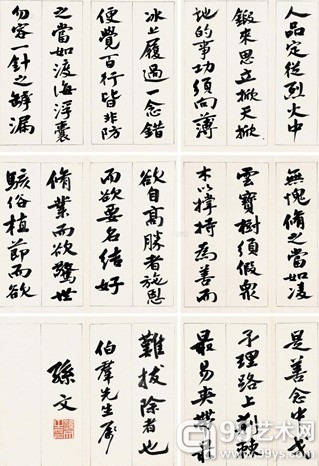 人品定從烈火中
鍛來思立掀天掀
地的事功須向薄
冰上履過一念錯
便覺百行皆非防
之當如渡海浮囊
勿容一針之罅漏
無愧脩之當如凌
雲寶樹須假衆
木以撐持為善而
欲自高勝者施恩
而欲要名結好
脩業而欲驚世
駭俗植節而欲
是善念中戈
矛理路上荊棘
最易夾帶最
難拔除者也
伯羣先生屬
孫文
99艺术网